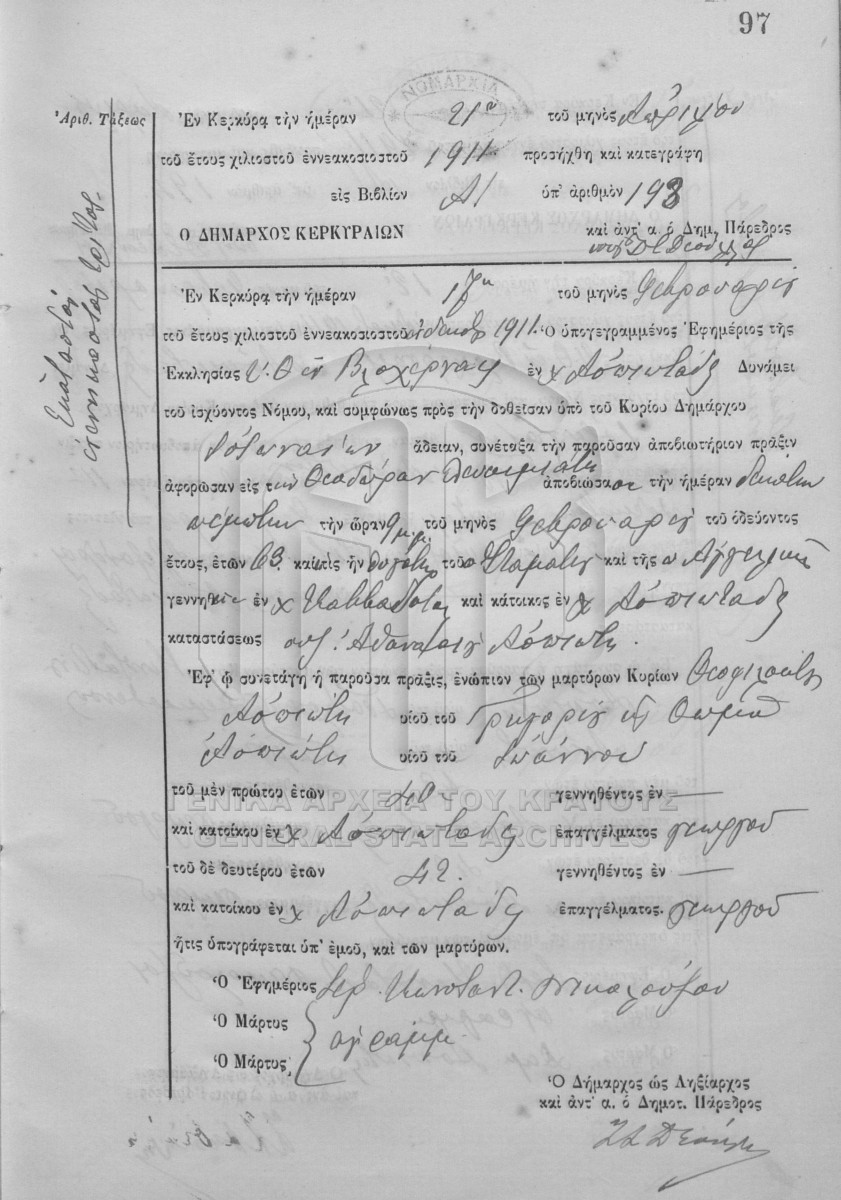 97
ΝΟΜΑΡΧΙΑ
Ἀριθ. Τάξεως
Ἐν Κερκύρᾳ τὴν ἡμέραν 21η τοῦ μηνὸς Ἀπριλίου
τοῦ ἔτους χιλιοστοῦ ἐννεακοσιοστοῦ 1911 προσήχθη καὶ κατεγράφη
εἰς Βιβλίον Α/ ὑπ' ἀριθμὸν 193
Ο ΔΗΜΑΡΧΟΣ ΚΕΡΚΥΡΑΙΩΝ καὶ ἀντ' α. ὁ Δημ. Πάρεδρος
Ἑκατοστὸς ἐννενηκοστὸς τρίτος
Ἐν Κερκύρᾳ τὴν ἡμέραν 17η τοῦ μηνὸς Φεβρουαρίου
τοῦ ἔτους χιλιοστοῦ ἐννεακοσιοστοῦ 1911. Ὁ ὑπογεγραμμένος Ἐφημέριος τῆς
Ἐκκλησίας Υ. Θ. Βλαχέρνας ἐν χ Αὐλιωτάδες Δυνάμει
τοῦ ἰσχύοντος Νόμου, καὶ συμφώνως πρὸς τὴν δοθεῖσαν ὑπὸ τοῦ Κυρίου Δημάρχου
ἄδειαν, συνέταξα τὴν παροῦσαν ἀποβιωτήριον πρᾶξιν
ἀφορῶσαν εἰς τὴν Θεοδώραν ἀποβιώσασα τὴν ἡμέραν δεκάτην
πέμπτην τὴν ὥραν 9 μ.μ. τοῦ μηνὸς Φεβρουαρίου τοῦ ὁδεύοντος
ἔτους, ἐτῶν 63 καὶ τις ἦν θυγάτηρ τοῦ Σταματίου καὶ τῆς Ἀγγελικῆς
γεννηθ ἐν χ Καββαδάδες καὶ κάτοικος ἐν χ Αὐλιωτάδες
καταστάσεως συζ. Ἀθανασίου Αὐλιώτη.
Ἐφ' ᾧ συνετάγη ἡ παροῦσα πρᾶξις, ἐνώπιον τῶν μαρτύρων Κυρίων Θεοφιλάκτου
Αὐλιώτη υἱοῦ τοῦ Γρηγορίου καὶ Θωμᾶ
Αὐλιώτη υἱοῦ τοῦ Ἰωάννου
τοῦ μὲν πρώτου ἐτῶν 40 γεννηθέντος ἐν —
καὶ κατοίκου ἐν χ Αὐλιωτάδες ἐπαγγέλματος γεωργοῦ
τοῦ δὲ δευτέρου ἐτῶν 42. γεννηθέντος ἐν —
καὶ κατοίκου ἐν χ Αὐλιωτάδες ἐπαγγέλματος. γεωργοῦ
ἥτις ὑπογράφεται ὑπ' ἐμοῦ, καὶ τῶν μαρτύρων.
Ὁ Ἐφημέριος Ἱερ. Κωνσταντ.
Ὁ Μάρτυς
Ὁ Μάρτυς ἀγράμμ.
Ὁ Δήμαρχος ὡς Ληξίαρχος
καὶ ἀντ' α. ὁ Δημοτ. Πάρεδρος
ΓΕΝΙΚΑ ΑΡΧΕΙΑ ΤΟΥ ΚΡΑΤΟΥΣ
GENERAL STATE ARCHIVES